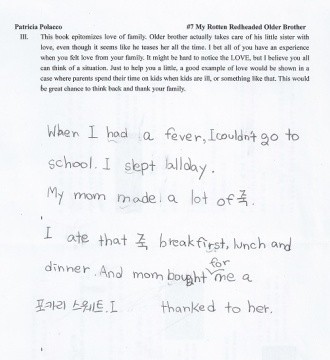 Patricia Polacco #7 My Rotten Redheaded Older Brother
III. This book epitomizes love of family. Older brother actually takes care of his little sister with
love, even though it seems like he teases her all the time. I bet all of you have an experience
when you felt love from your family. It might be hard to notice the LOVE, but I believe you all
can think of a situation. Just to help you a little, a good example of love would be shown in a
case where parents spend their time on kids when kids are ill, or something like that. This would
be great chance to think back and thank your family.
When I had a fever, I couldn't go to
school. I slept all day.
My mom made a lot of 죽.
I ate that 죽 breakfirst, lunch and
for
dinner. And mom bought me a
포카리 스웨트. I thanked to her.